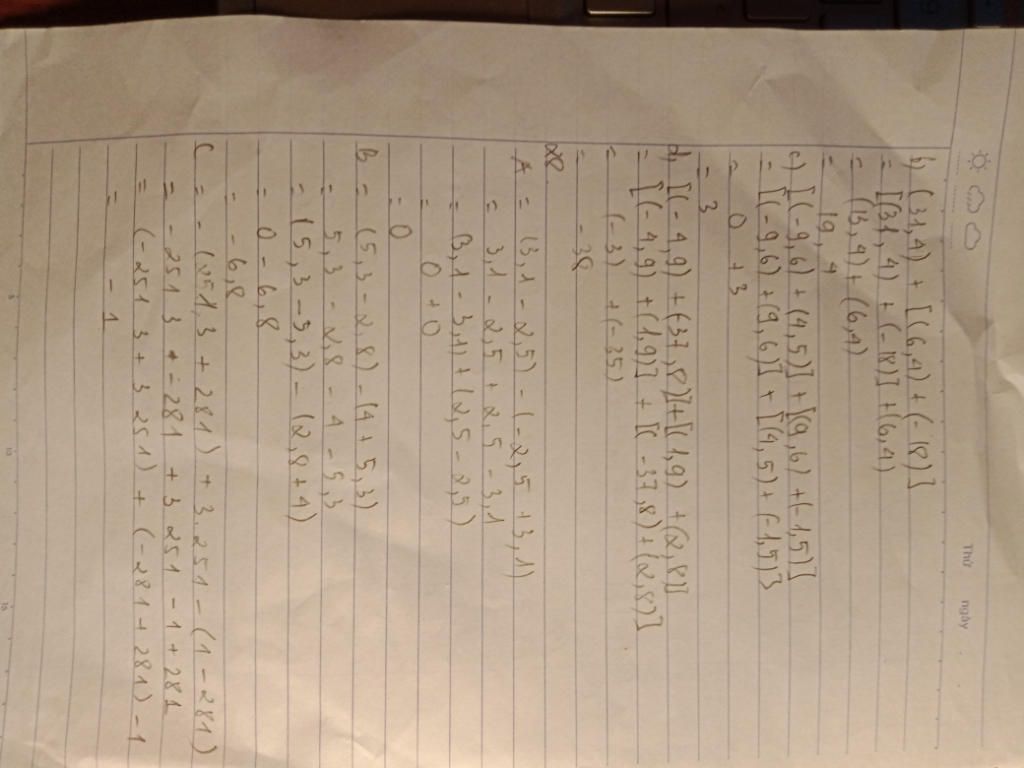 Thứ ngày
b) (31,4) + [(6,4) + (-18)]
= [(31,4) + (-18)] + (6,4)
= (13,4) + (6,4)
= 19,
c) [(-9,6) + (4,5)] + [(9,6) + (-1,5)]
= [(-9,6) + (9,6)] + [(4,5) + (-1,5)}
= 0 + 3
= 3
d, [(-4,9) + (-37,8)] + [(1,9) + (2,8)]
= [(-4,9) + (1,9)] + [(-37,8) + (2,8)]
= (-3) + (-35)
= -38
28
A = (3,1 - 2,5) - (-2,5 + 3,1)
= 3,1 - 2,5 + 2,5 - 3,1
= (3,1 - 3,1) + (2,5 - 2,5)
= 0 + 0
= 0
B = (5,3 - 2,8) - (4 + 5,3)
= 5,3 - 2,8 - 4 - 5,3
= (5,3 - 5,3) - (2,8 + 4)
= 0 - 6,8
= -6,8
C = -(251,3 + 281) + 3.251 - (1 - 281)
= -251 3 - 281 + 3 251 - 1 + 281
= (-251 3 + 3 251) + (-281 + 281) - 1
= -1
5
10
15